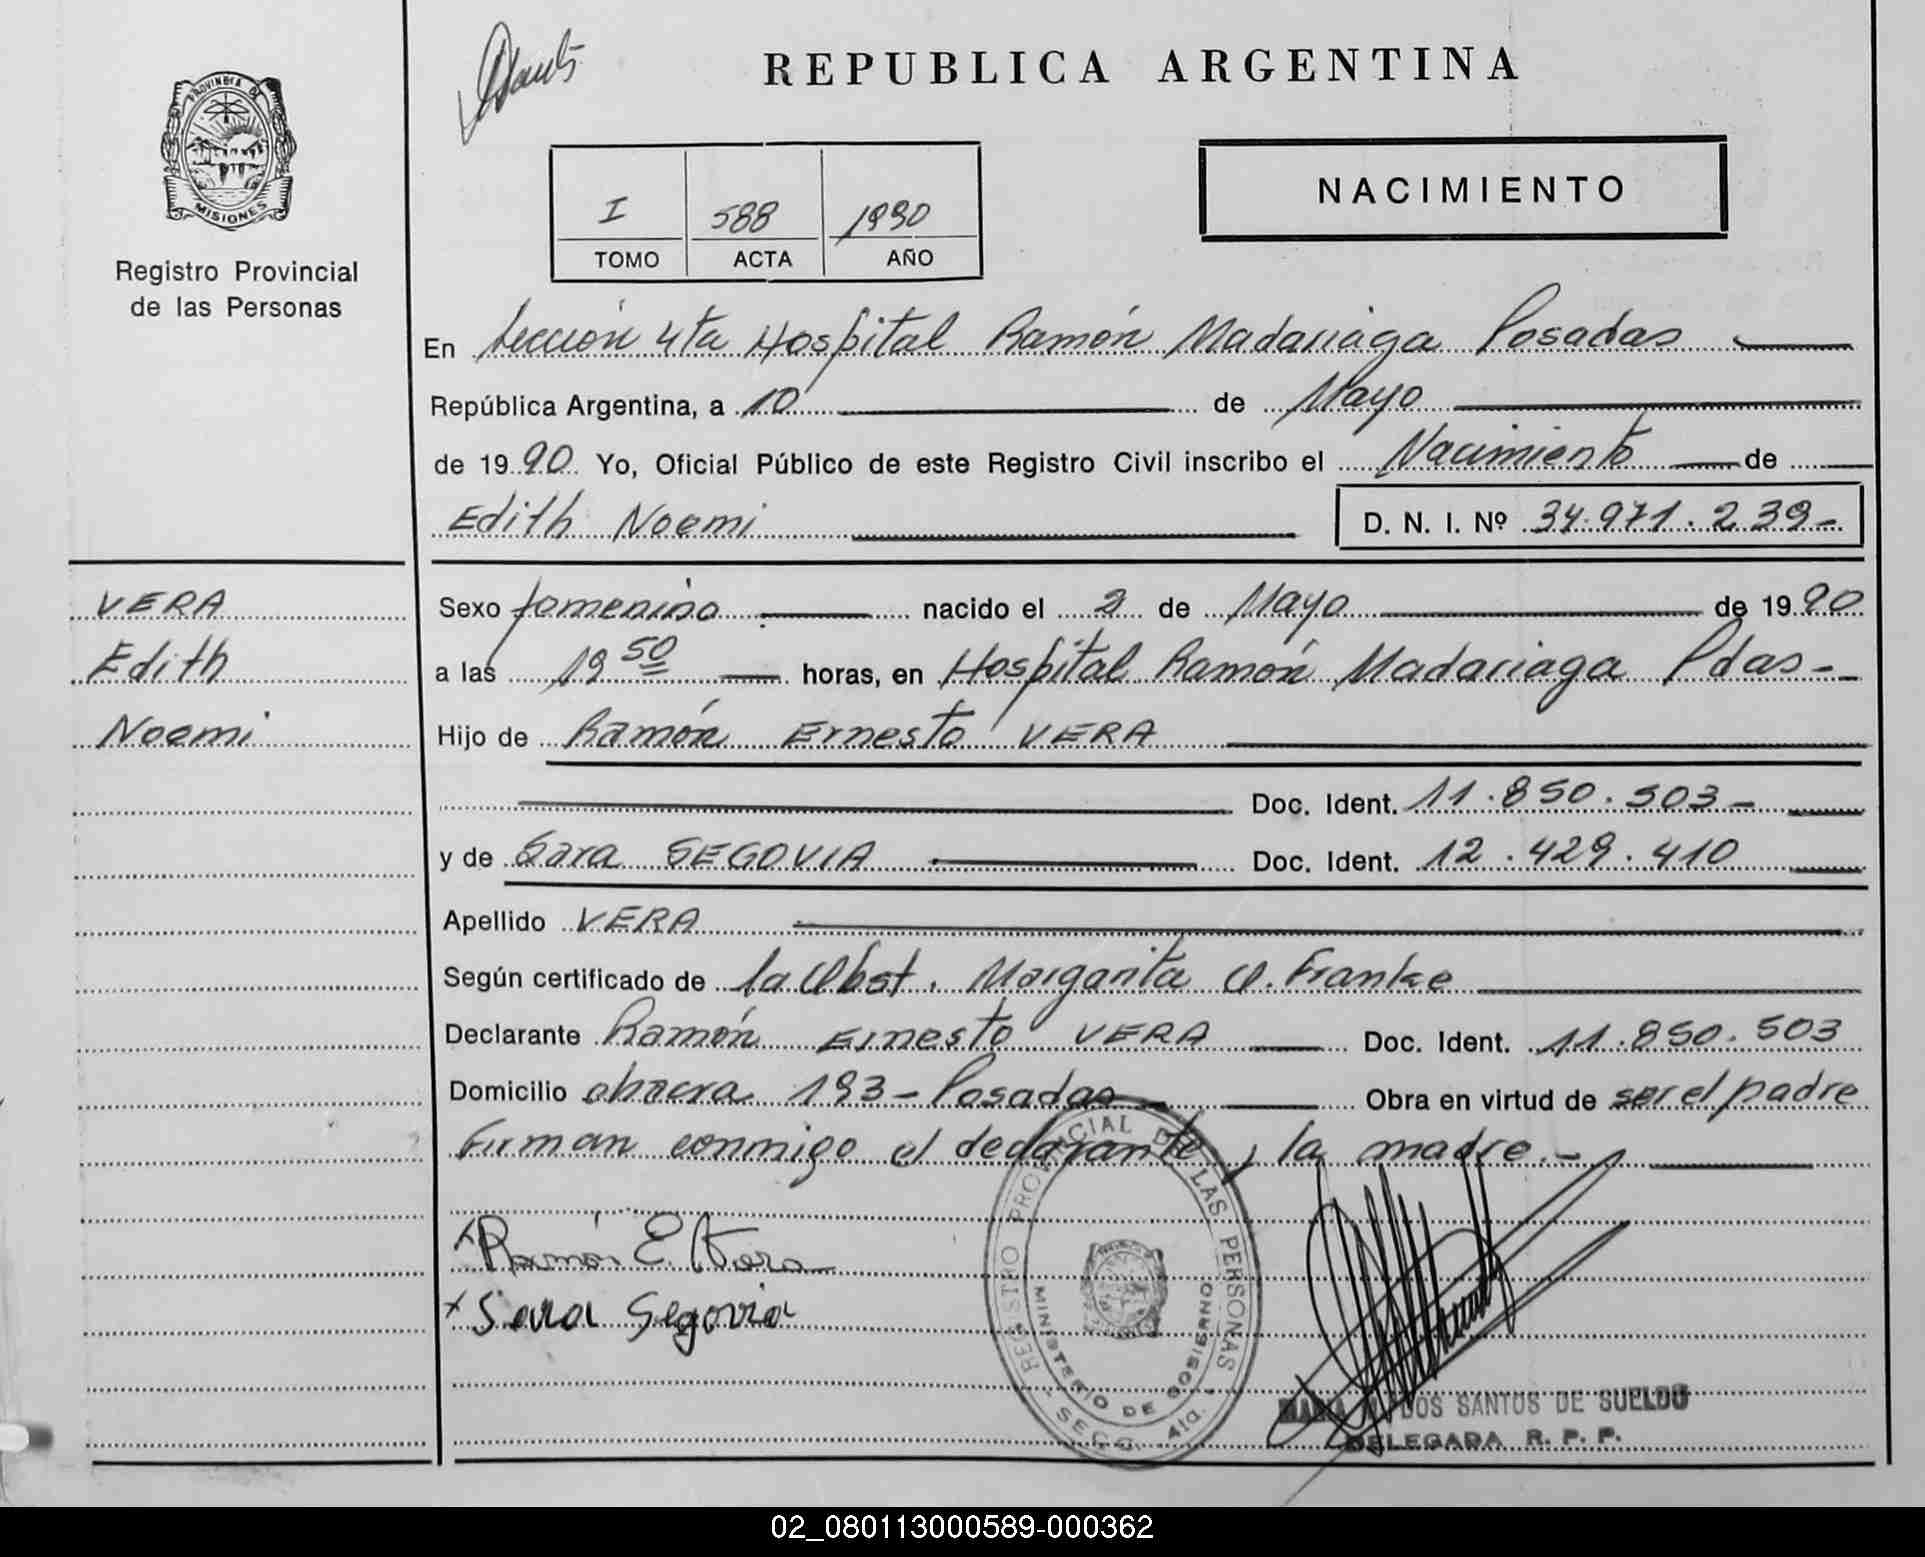 REPUBLICA ARGENTINA
PROVINCIA DE
MISIONES
Registro Provincial
de las Personas
I 588 1990
TOMO ACTA AÑO
NACIMIENTO
En Sección 4ta Hospital Ramón Madariaga Posadas
República Argentina, a 10 de Mayo
de 1990 Yo, Oficial Público de este Registro Civil inscribo el Nacimiento de
Edith Noemi D. N. I. Nº 34.971.239-
VERA
Edith
Noemi
Sexo femenino nacido el 2 de Mayo de 1990
a las 19 50 horas, en Hospital Ramón Madariaga Pdas-
Hijo de Ramón Ernesto VERA
Doc. Ident. 11.850.503-
y de Sara SEGOVIA Doc. Ident. 12.429.410
Apellido VERA
Según certificado de la Obst. Margarita O. Franke
Declarante Ramón Ernesto VERA Doc. Ident. 11.850.503
Domicilio chacra 193- Posadas Obra en virtud de ser el padre
Firman conmigo el declarante y la madre.-
x Ramón E. Vera
x Sara Segovia
REGISTRO PROVINCIAL DE LAS PERSONAS
MINISTERIO DE GOBIERNO
- SECC. 4ta. -
DOS SANTOS DE SUELDO
DELEGADA R. P. P.
02_080113000589-000362